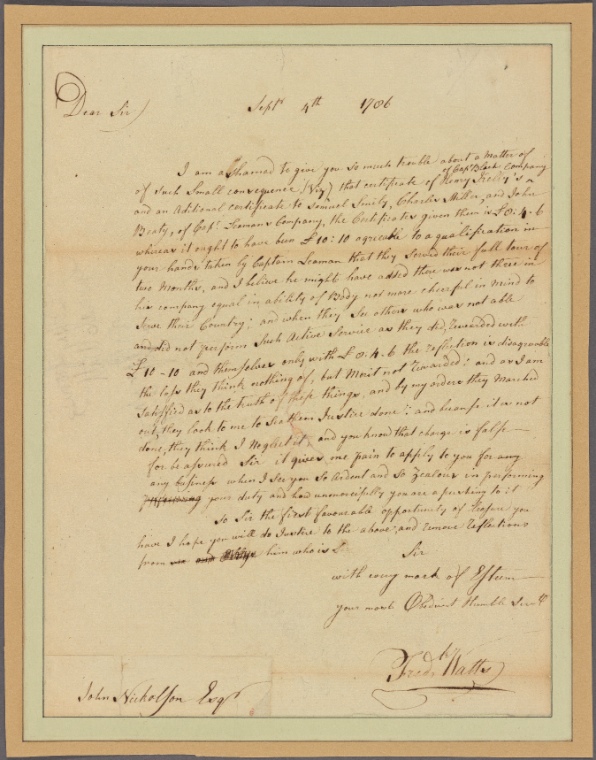 Dear Sir
Septr 4th 1786
I am ashamed to give you so much trouble about a Matter of
of such Small consequence (Viz) that certificate of Henry
of Capt Black Company
and an Aditional certificate to Samuel Smily, Charles Miller, and John
Beaty, of Capt. Leamans Company, the Certificates given them is £0.4.6
whereas it ought to have been £10:10 agreable to a qualification in
your hands taken by Captain Leaman that they Served their full tour of
two Months, and I believe he might have added there was not three in
his company equal in ability of Body nor more cheerful in Mind to
Serve their Country; and when they See others who was not able
and did not perform Such Active Service as they did, Rewarded with
£10-10 and themselves only with £0.4.6 the reflection is disagreeable
the loss they think nothing of, but Merit not Rewarded; and as I am
Satisfied as to the truth of those things, and by my orders they Marched
out, they look to me to See them Justice done; and because it is not
done, they think I Neglect it, and you know that charge is false
for be assured Sir it gives me pain to apply to you for any
any business when I see you So Ardent and So Zealous in performing
your duty and how unmercifully you are a pushing to it
So Sir the first favourable opportunity of Leasure you
have I hope you will do Justice to the above, and remove Reflections
from him who is
Sir
with every mark of Esteem
your most Obedient Humble Servt
Fredk Watts
John Nicholson Esqr